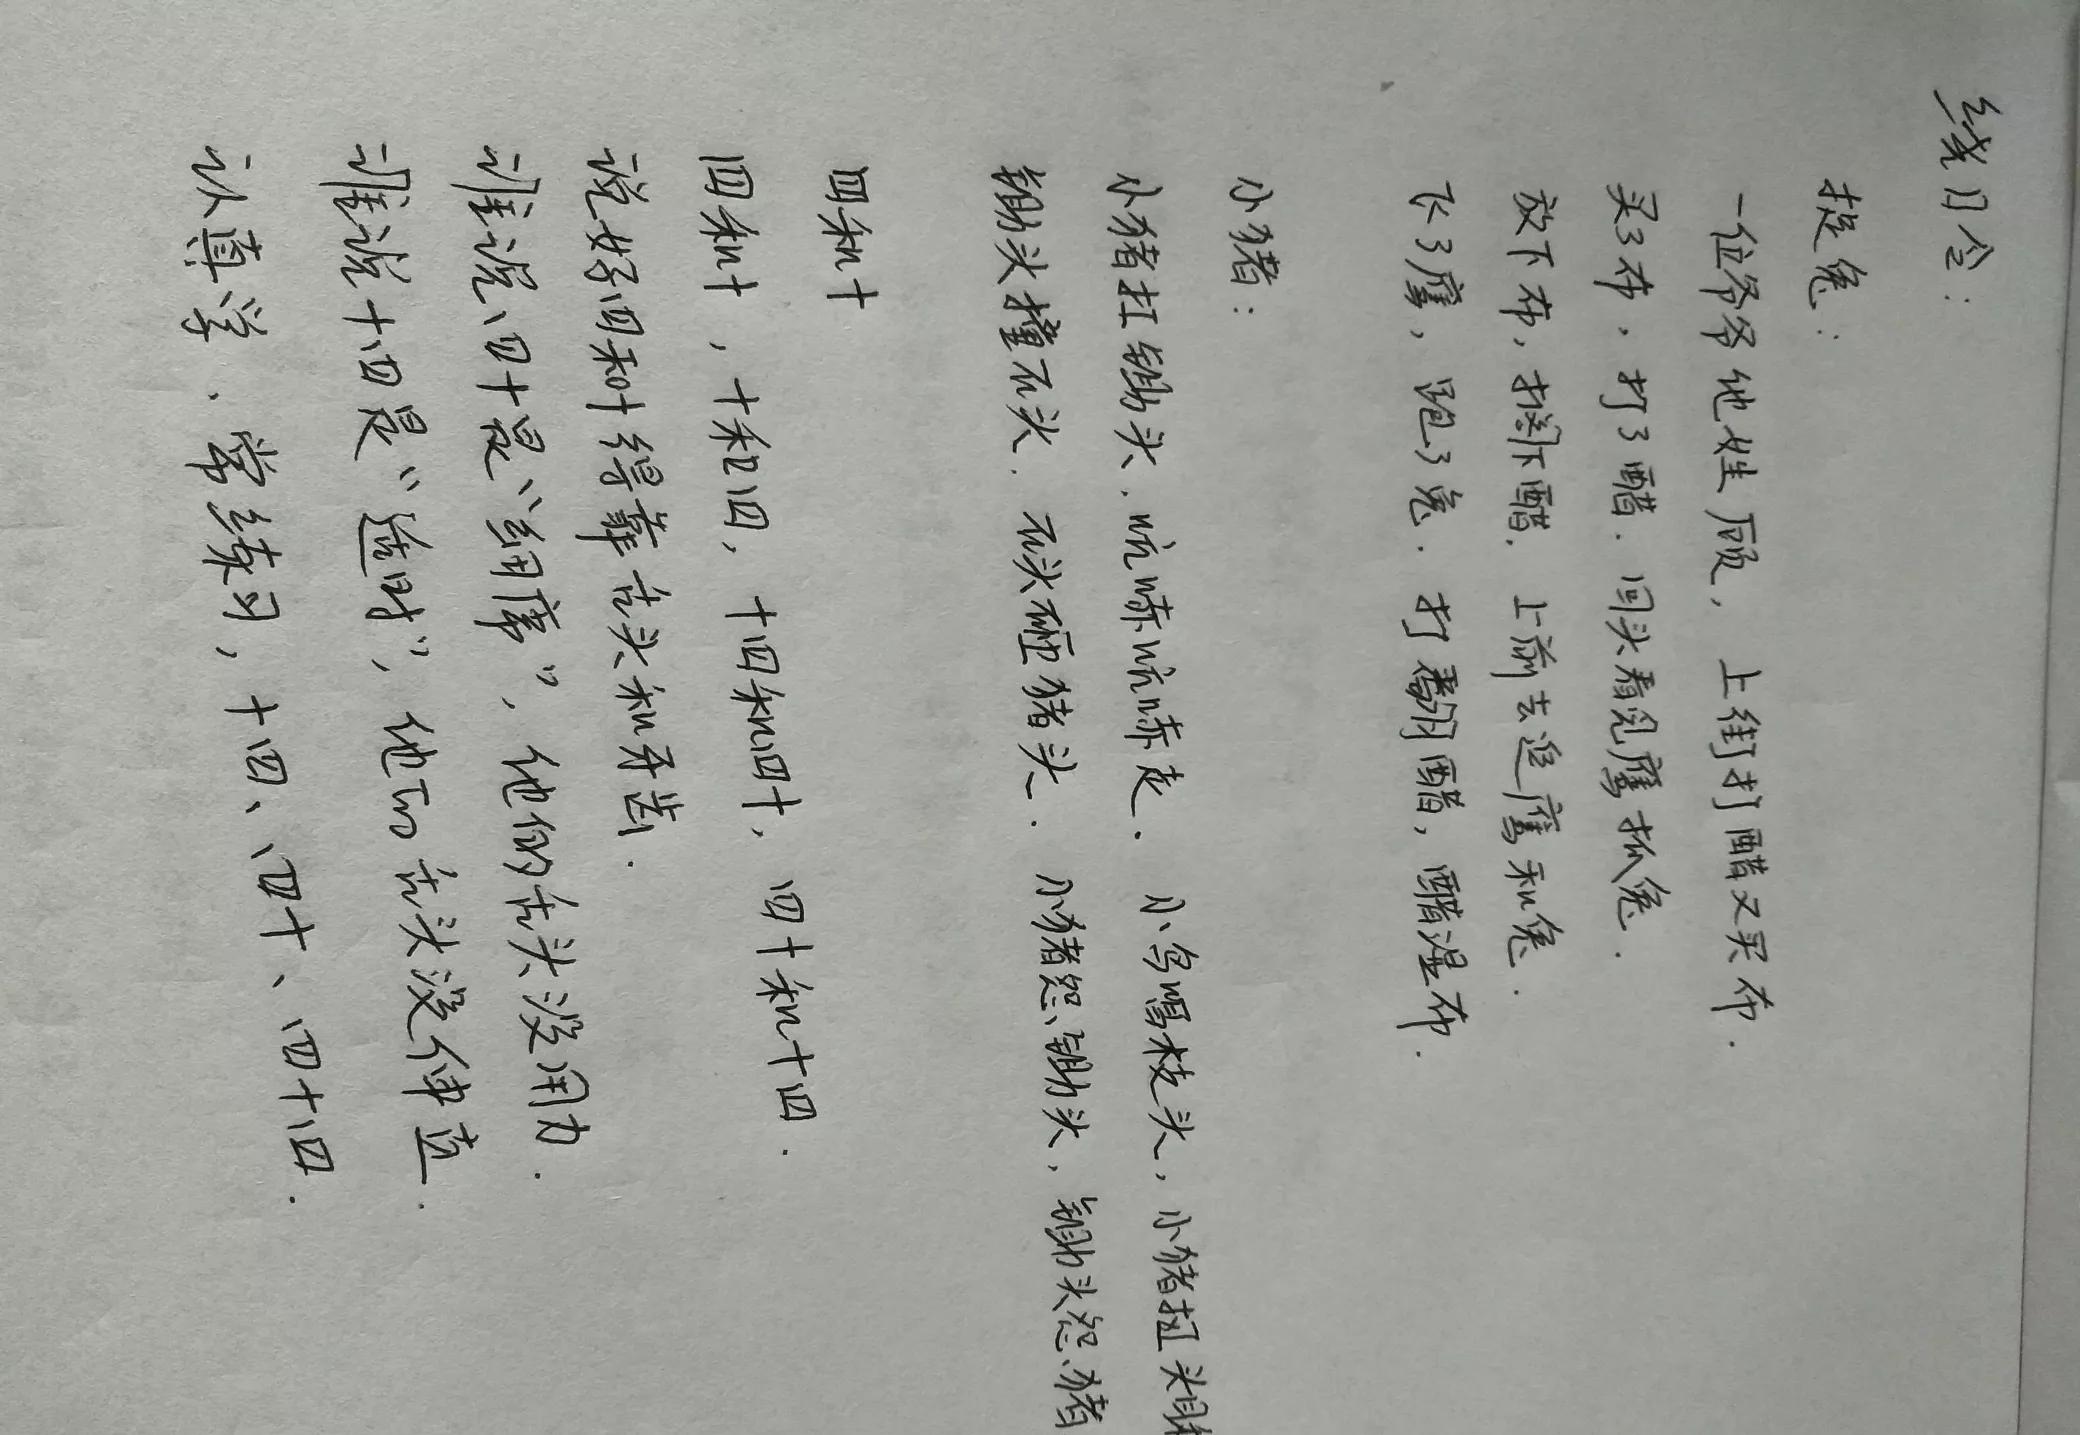 绕口令：
捉兔：
一位爷爷他姓顾，上街打醋又买布.
买了布，打了醋.回头看见鹰抓兔.
放下布，搁下醋.上前去追鹰和兔.
飞了鹰，跑了兔.打翻醋，醋湿布.
小猪：
小猪扛锄头，吭哧吭哧走.小鸟唱枝头，小猪扭头
锄头撞石头.石头砸猪头.小猪怨锄头，锄头怨猪
四和十
四和十，十和四，十四和四十，四十和十四.
说好四和十得靠舌头和牙齿.
谁说四十是“细席”，他的舌头没用力.
谁说十四是“适时”，他的舌头没伸直.
认真学.常练习，十四、四十、四十四.